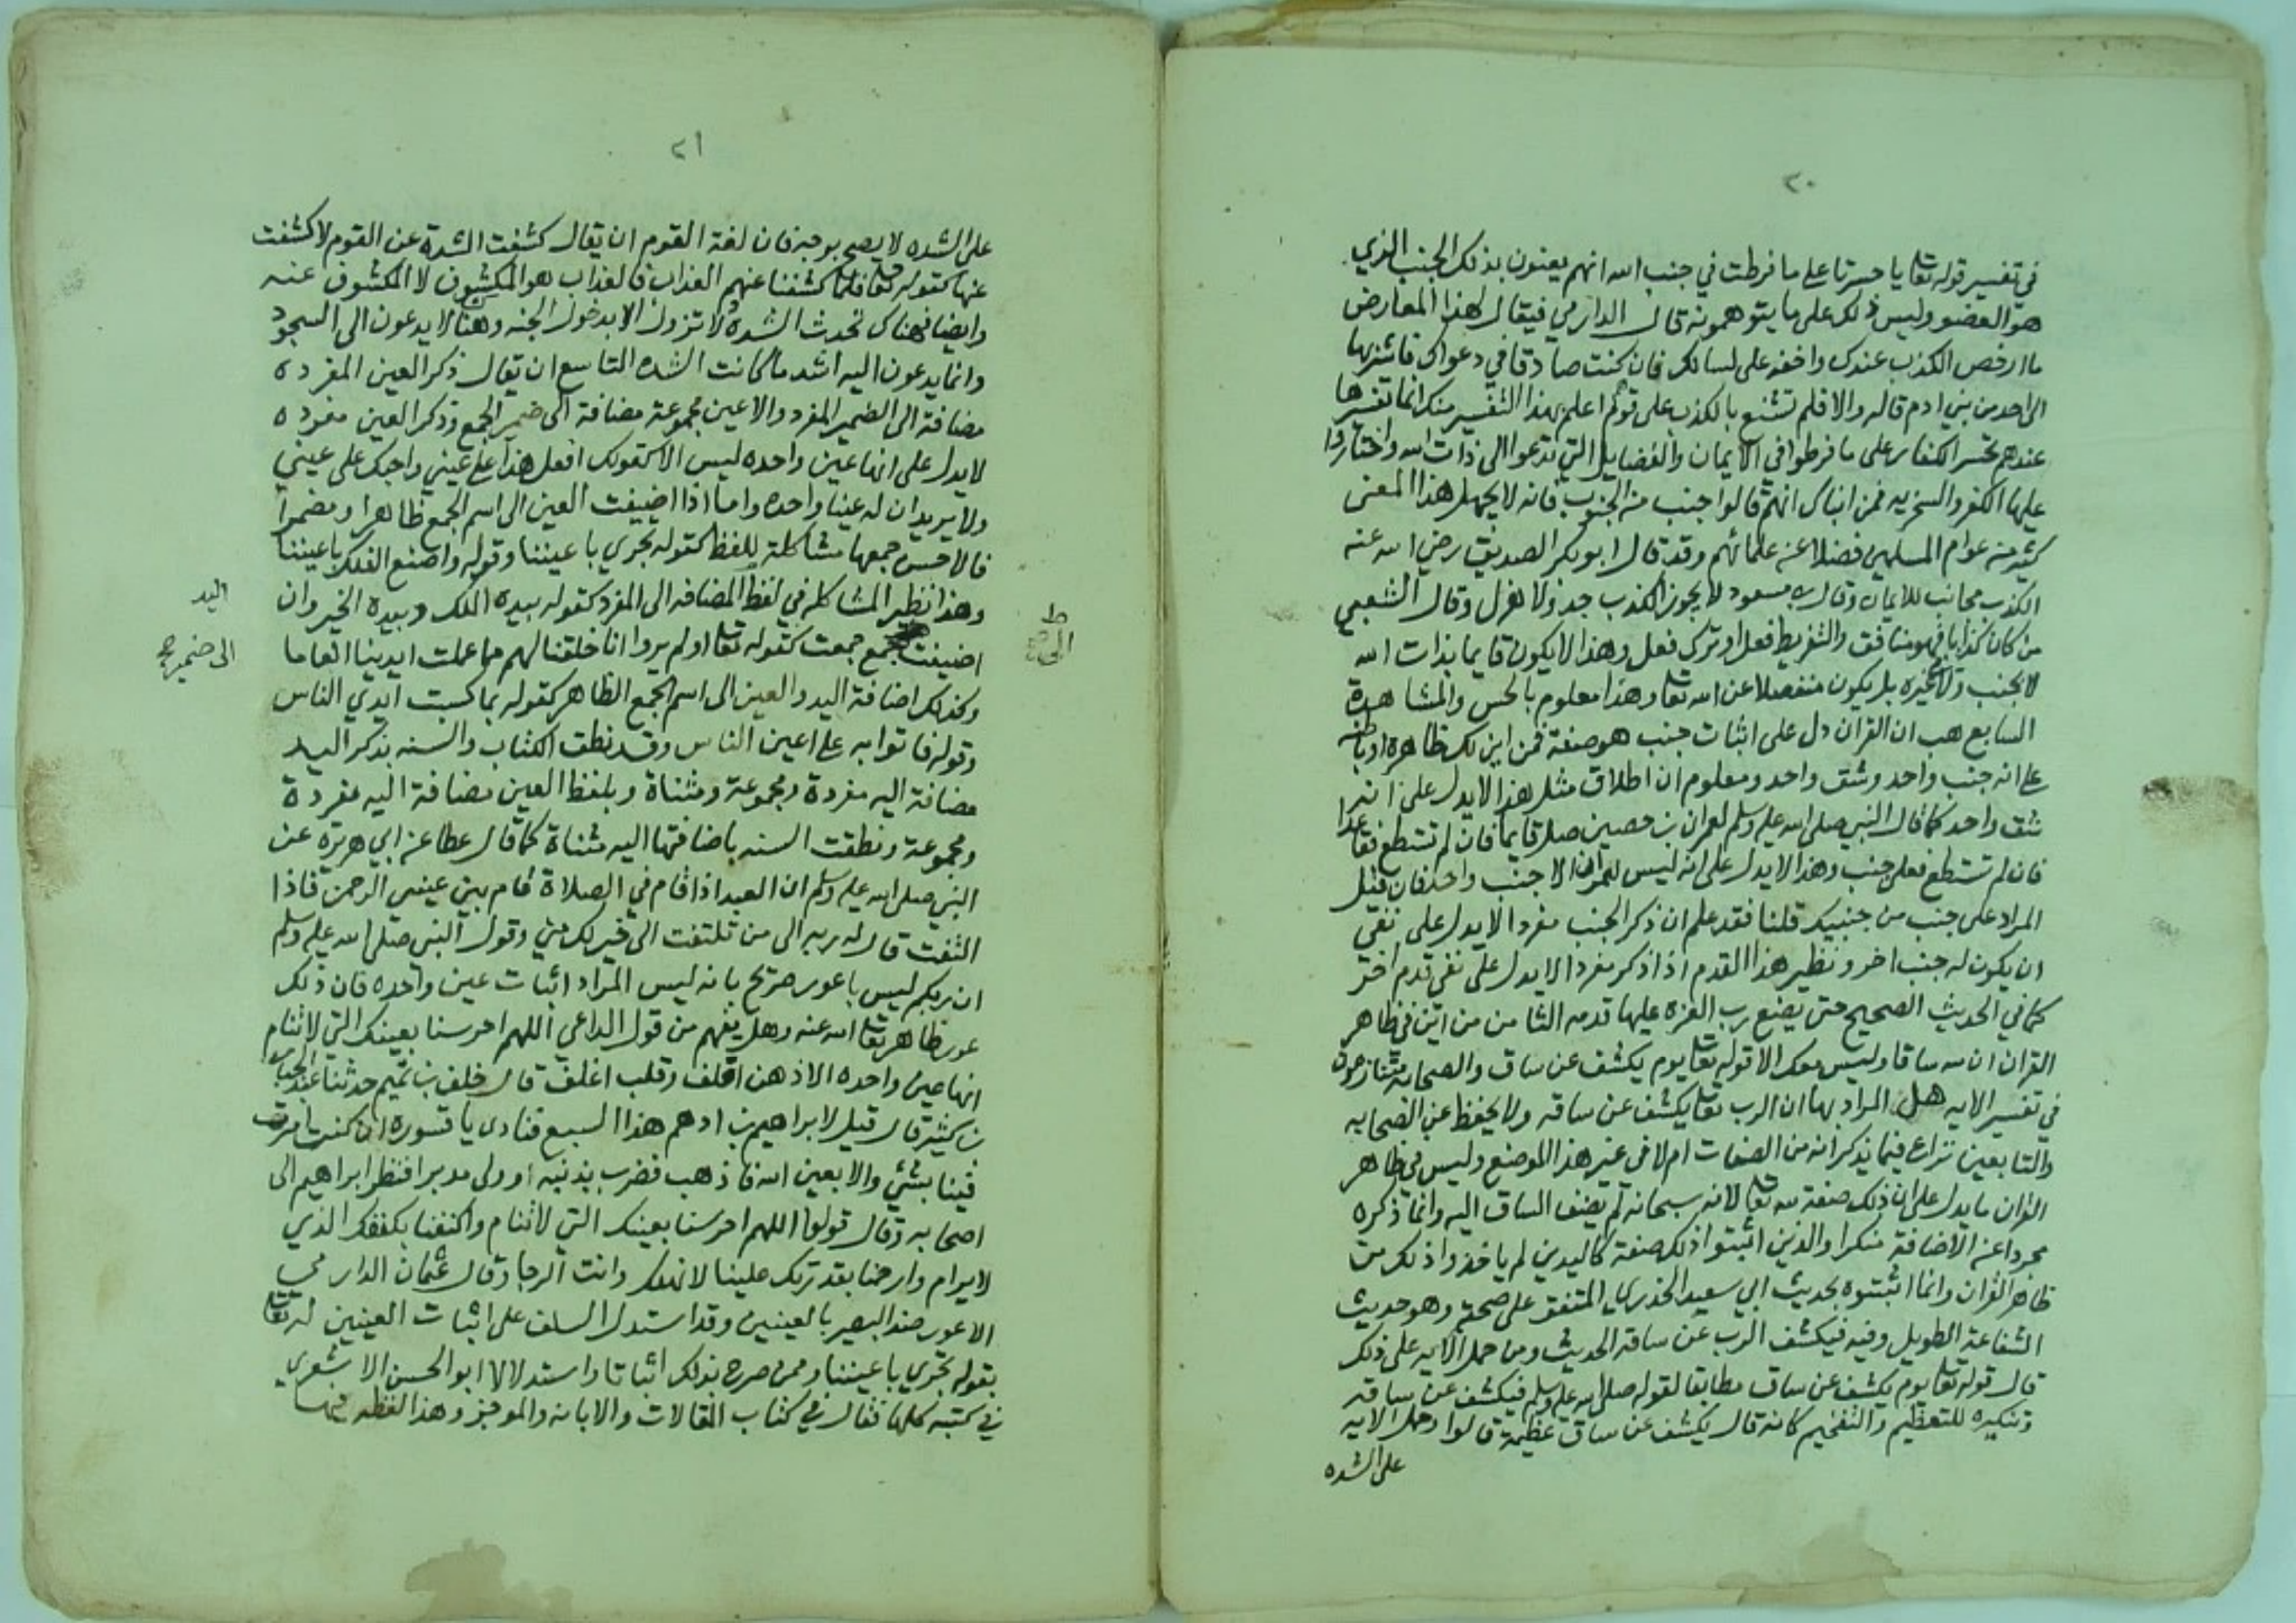 ٢٠
في تفسير قوله تعا يا حسرتا على ما فرطت في جنب الله انهم يعنون بذلك الجنب الذي
هو العضو وليس ذلك على ما يتوهمونه قال الدارمي فيقال لهذا المعارض
ما ارخص الكذب عندك واخفه على لسانك فان كنت صادقا في دعواك فاشر بها
الى احد من بني ادم قاله والا فلم تشنع بالكذب على قوم اعلم بهذا التفسير منك انما تفسيرها
عندهم تحسر الكفار على ما فرطوا في الايمان والفضايل التي تدعوا الى ذات الله واختاروا
عليها الكفر والسخريه فمن انباك انهم قالوا جنب من الجنوب فانه لا يجهل هذا المعنى
كثير من عوام المسلمين فضلا عن علمائهم وقد قال ابو بكر الصديق رضي الله عنه
الكذب مجانب للايمان وقال بن مسعود لا يجوز الكذب جد ولا هزل وقال الشعبي
من كان كذابا فهو منافق والتفريط فعل او ترك فعل وهذا لا يكون قايما بذات الله
لا بجنب ولا غيره بل يكون منفصلا عن الله تعا وهذا معلوم بالحس والمشاهدة
السابع هب ان القران دل على اثبات جنب هو صفة فمن اين لك ظاهره او باطنه
على انه جنب واحد وشق واحد ومعلوم ان اطلاق مثل هذا لا يدل على انه
شق واحد كما قال النبي صلى الله عليه وسلم لعمران بن حصين صل قايما فان لم تستطع فقاعدا
فان لم تستطع فعلى جنب وهذا لا يدل على انه ليس لعمران الا جنب واحد فان قيل
المراد على جنب من جنبيك قلنا فقد علم ان ذكر الجنب مفردا لا يدل على نفي
ان يكون له جنب اخر ونظير هذا القدم اذا ذكر مفردا لا يدل على نفي قدم اخر
كما في الحديث الصحيح حتى يضع رب العزه عليها قدمه الثامن من اين في ظاهر
القران ان لله ساقا وليس معك الا قوله تعا يوم يكشف عن ساق والصحابه متنازعون
في تفسير الايه هل المراد بها ان الرب تعا يكشف عن ساقه ولا يحفظ عن الصحابه
والتابعين نزاع فيما يذكر انه من الصفات ام لا في غير هذا الموضع وليس في ظاهر
القران ما يدل على ان ذلك صفة لله تعا لانه سبحانه لم يضف الساق اليه وانما ذكره
مجردا عن الاضافة منكرا والذين اثبتوا ذلك صفة كاليدين لم ياخذوا ذلك من
ظاهر القران وانما اثبتوه بحديث ابي سعيد الخدري المتفق على صحته وهو حديث
الشفاعة الطويل وفيه فيكشف الرب عن ساقه الحديث ومن حمل الايه على ذلك
قال قوله تعا يوم يكشف عن ساق مطابقا لقوله صلى الله عليه وسلم فيكشف عن ساقه
وتنكيره للتعظيم والتفخيم كانه قال يكشف عن ساق عظيمة قالوا وحمل الايه
على الشده
٢١
على الشده لا يصح بوجه فان لغة القوم ان يقال كشفت الشدة عن القوم لا كشفت
عنها كقوله تعا فلما كشفنا عنهم العذاب فالعذاب هو المكشوف لا المكشوف عنه
وايضا فهناك تحدث الشده لا تزول الا بدخول الجنه وهنا لا يدعون الى السجود
وانما يدعون اليه اشد ما كانت الشده التاسع ان يقال ذكر العين المفرده
مضافة الى الضمير المفرد والاعين مجموعة مضافة الى ضمير الجمع وذكر العين مفرده
لا يدل على انها عين واحده ليس الا كقولك افعل هذا على عيني واجيك على عيني
ولا يريد ان له عينا واحده واما اذا اضيفت العين الى اسم الجمع ظاهرا او مضمرا
فالاحسن جمعها مشاكلة للفظ كقوله تجري باعيننا وقوله واصنع الفلك باعيننا
وهذا نظير المشاكله في لفظ المضافه الى المفرد كقوله بيده الملك وبيده الخير وان
اليد
اضيفت جمع جمعت كقوله تعا اولم يروا انا خلقنا لهم مما عملت ايدينا انعاما
الى ضمير
وكذلك اضافة اليد والعين الى اسم الجمع الظاهر كقوله بما كسبت ايدي الناس
وقوله فاتوا به على اعين الناس وقد نطق الكتاب والسنه بذكر اليد
مضافة اليه مفردة ومجموعة ومثناة وبلفظ العين مضافة اليه مفردة
ومجموعة ونطقت السنه باضافتها اليه مثناة كما قال عطا عن ابي هريرة عن
النبي صلى الله عليه وسلم ان العبد اذا قام في الصلاة قام بين عيني الرحمن فاذا
التفت قال له ربه الى من تلتفت الى خير لك مني وقول النبي صلى الله عليه وسلم
ان ربكم ليس باعور صريح بانه ليس المراد اثبات عين واحده فان ذلك
عور ظاهر تعا الله عنه وهل يفهم من قول الداعي اللهم احرسنا بعينك التي لا تنام
انها عين واحده الا ذهن اقلف وقلب اغلف قال خلف بن تميم حدثنا عبد الجبار
بن كثير قال قيل لابراهيم بن ادهم هذا السبع فنادى يا قسوره ان كنت امرت
فينا بشئ والا بعين الله فاذهب فضرب بذنبه وولى مدبرا فنظر ابراهيم الى
اصحابه وقال قولوا اللهم احرسنا بعينك التي لا تنام واكنفنا بكنفك الذي
لا يرام وارحمنا بقدرتك علينا لا نهلك وانت الرجا وقال عثمان الدارمي
الاعور ضد البصير بالعينين وقد استدل السلف على اثبات العينين له تعا
بقوله تجري باعيننا وممن صرح بذلك اثباتا واستدلالا ابو الحسن الاشعري
في كتبه كلها فقال في كتاب المقالات والابانه والموجز وهذا لفظه فيها